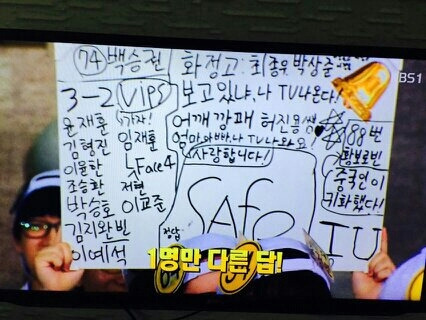 74 백승권
화정고: 최종우 박상준
3-2 VIPS
보고있냐, 나 TV나온다!
윤재훈
김형진
이윤한
조승환
박승호
김지완빈
이예석
가자!
임재훈
Face4
저현
이교준
어깨깡패 허진용
엄마아빠, 나 TV나와요!
사랑합니다!
88번
황보로빈
중국인이
귀화했다!
정답
SAfe
IU
1명만 다른 답!
BS1